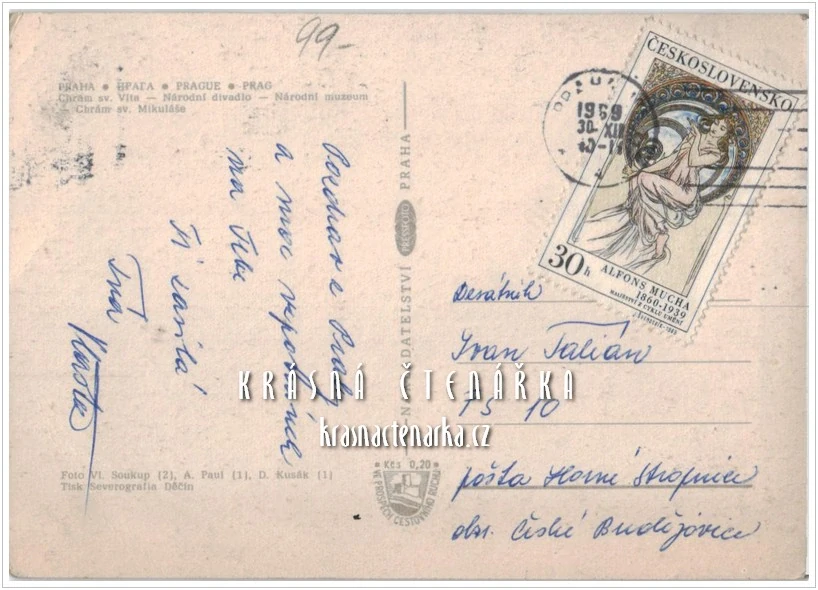 99.-
PRAHA • ПРАГА • PRAGUE • PRAG
Chrám sv. Víta — Národní divadlo — Národní muzeum
— Chrám sv. Mikuláše
Pozdrav z Prahy
a moc vzpomínek
na Tebe
Ti zasílá
Tvá Vlasta
Foto Vl. Soukup (2), A. Paul (1), D. Kusák (1)
Tisk Severografia Děčín
NAKLADATELSTVÍ PRESSFOTO PRAHA
Kčs 0,20
VE PROSPĚCH CESTOVNÍHO RUCHU
1969
30.XII
ČESKOSLOVENSKO
30h
ALFONS MUCHA
1860-1939
MALÍŘSTVÍ Z CYKLU UMĚNÍ
Desátník
Ivan Talián
PS 10
pošta Horní Stropnice
okr. České Budějovice
KRÁSNÁ ČTENÁŘKA
krasnactenarka.cz